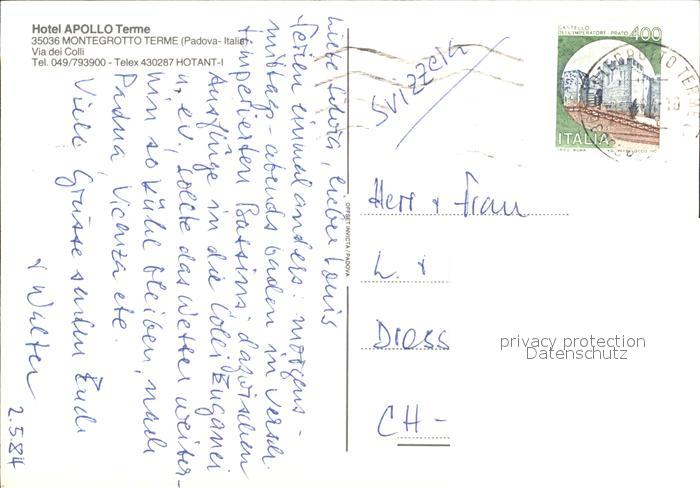 Hotel APOLLO Terme
35036 MONTEGROTTO TERME (Padova - Italia)
Via dei Colli
Tel. 049/793900 - Telex 430287 HOTANT-I
Liebe Silvia, lieber Louis
Ferien einmal anders: morgens -
mittags - abends baden in versch.
temperierten Bassins; dazwischen
Ausflüge in die Colli Euganei
u. ev., sollte das Wetter weiter-
hin so kühl bleiben, nach
Padua, Vicenza etc.
Viele Grüsse senden Trudi
+ Walter
2.5.84
OFFSET INVICTA / PADOVA
Svizzera
CASTELLO
DELL'IMPERATORE - PRATO
400
ITALIA
Herr + Frau
L. +
Dross
CH-
privacy protection
Datenschutz